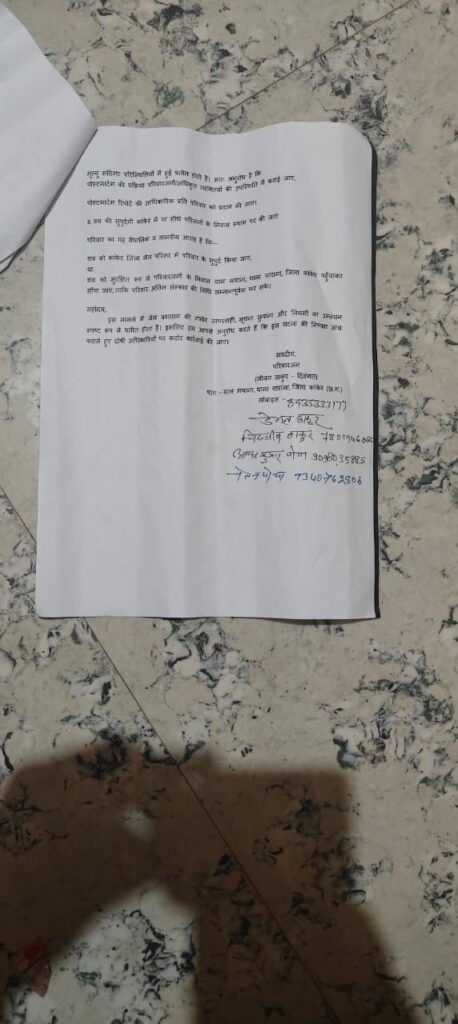 मृत्यु संदिग्ध परिस्थितियों में हुई प्रतीत होती है। अतः अनुरोध है कि
पोस्टमार्टम की प्रक्रिया परिवारजनों/अधिकृत व्यक्तियों की उपस्थिति में कराई जाए,
पोस्टमार्टम रिपोर्ट की आधिकारिक प्रति परिवार को प्रदान की जाए।
8. शव की सुपुर्दगी कांकेर में या सीधे परिजनों के निवास स्थान पर की जाए
परिवार का यह वैधानिक व मानवीय आग्रह है कि—
शव को कांकेर जिला जेल परिसर में परिवार के सुपुर्द किया जाए,
या
शव को सुरक्षित रूप से परिवारजनों के निवास ग्राम मयाना, थाना चारामा, जिला कांकेर पहुँचाकर
सौंपा जाए, ताकि परिवार अंतिम संस्कार की विधि सम्मानपूर्वक कर सके।
महोदय,
इस मामले में जेल प्रशासन की गंभीर लापरवाही, सूचना छुपाना और नियमों का उल्लंघन
स्पष्ट रूप से प्रतीत होता है। इसलिए हम आपसे अनुरोध करते हैं कि इस घटना की निष्पक्ष जांच
कराते हुए दोषी अधिकारियों पर कठोर कार्रवाई की जाए।
भवदीय,
परिवारजन
(जीवन ठाकुर – दिवंगत)
पता – ग्राम मयाना, थाना चारामा, जिला कांकेर (छ.ग.)
मोबाइल -
ठाकुर
ठाकुर
कुमार
9340762806